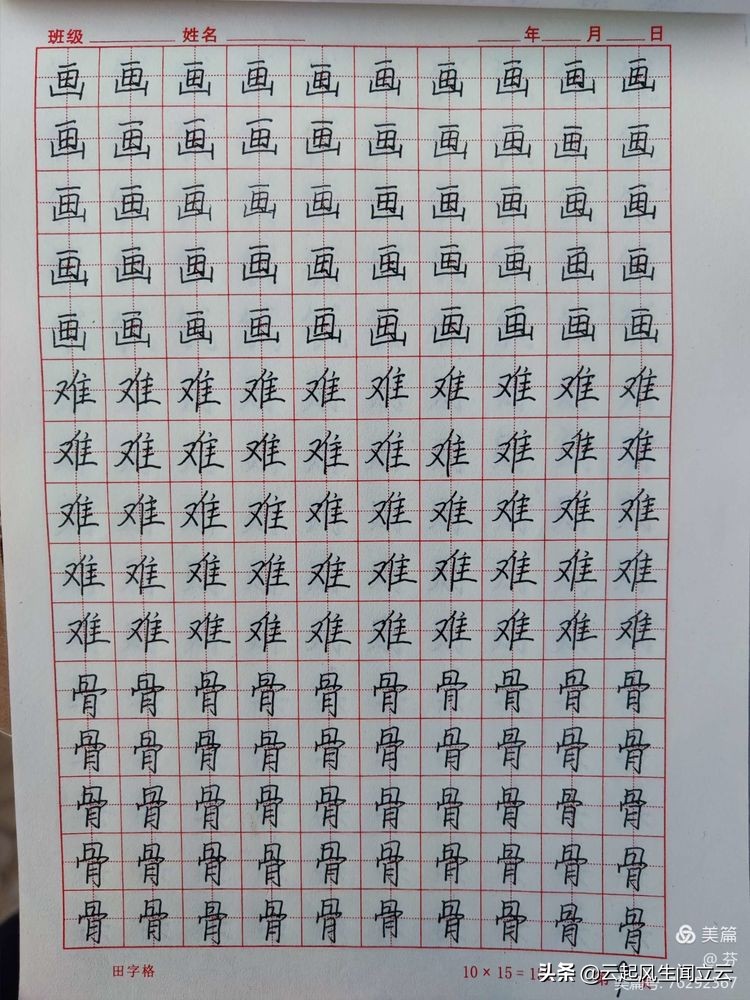 班级 姓名 年 月 日
画画画画画画画画画画
画画画画画画画画画画
画画画画画画画画画画
画画画画画画画画画画
画画画画画画画画画画
难难难难难难难难难难
难难难难难难难难难难
难难难难难难难难难难
难难难难难难难难难难
难难难难难难难难难难
骨骨骨骨骨骨骨骨骨骨
骨骨骨骨骨骨骨骨骨骨
骨骨骨骨骨骨骨骨骨骨
骨骨骨骨骨骨骨骨骨骨
骨骨骨骨骨骨骨骨骨骨
美篇
@芬
田字格 10×15=1
头条 @云起风生闻立云
美篇号: 76252367